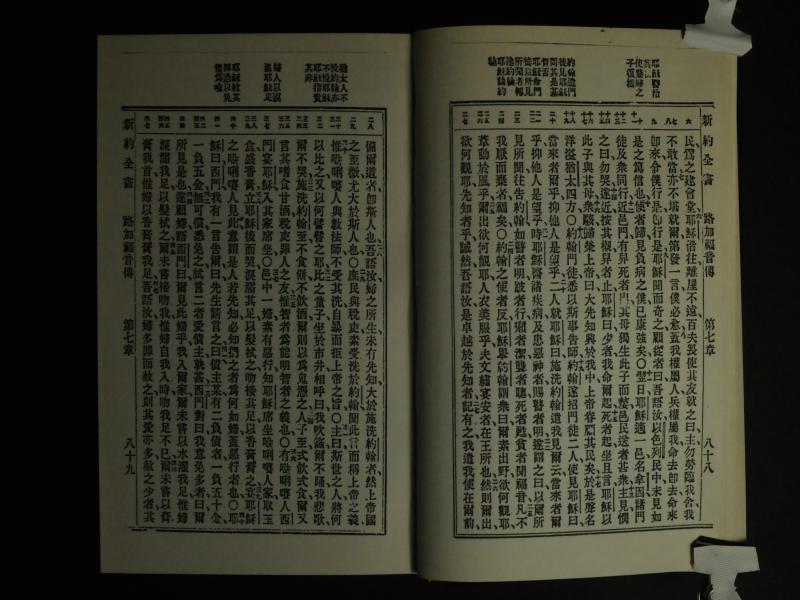 約翰遣門
徒見耶穌
問其是基
督否
耶穌命門
徒以所見
所聞者報
約翰
耶穌論約
翰
使嫠婦之
子復活
新約全書 路加福音傳 第七章 八十八
民爲之建會堂耶穌偕往離屋不遠百夫長使其友就之曰主勿勞臨我舍我
不敢當亦不堪就爾第發一言僕必愈蓋我權屬人兵權屬我命去卽去命來
卽來令僕行是卽行是耶穌聞而奇之顧從者曰吾語汝以色列民中未見如
是之篤信也使者歸見負病之僕已康強矣〇翌日耶穌適一邑名拿因諸門
徒及衆同行近邑門有舁死者出其母獨生此子而嫠邑民送者甚衆主見憫
之曰勿哭遂近按其櫬舁者止耶穌曰少者我命爾起死者起坐且言耶穌以
此子與其母衆駭歸榮上帝曰大先知興於我中上帝眷顧其民矣於是聲名
洋溢猶太四方〇約翰門徒悉以斯事告師約翰遂招門徒二人使見耶穌曰
當來者爾乎抑他人是望乎二人就耶穌曰施洗約翰遣我見爾云當來者爾
乎抑他人是望乎時耶穌醫諸疾病及患惡神者賜瞽者明遂謂之曰以爾所
見所聞往告約翰如瞽者明跛者行癩者潔聾者聽死者甦貧者聞福音凡不
我厭而棄者福矣〇約翰之使者反耶穌舉約翰謂衆曰爾素出野欲何觀耶
葦動於風乎爾出欲何觀耶人衣美服乎夫文繡宴安者在王所也然則爾出
欲何觀耶先知者乎誠然吾語汝是卓越於先知者記有之我遣我使在爾前
猶太人不
悅約翰亦
不悅耶穌
耶穌指責
其非
婦人以淚
濕耶穌足
新約全書 路加福音傳 第七章 八十九
備爾道者卽斯人也吾語汝婦之所生未有先知大於施洗約翰者然上帝國
之至微尤大於斯人也〇庶民與稅吏素受洗於約翰聞此言而稱上帝之義
惟𠵽唎㘔人與教法師不受其洗自暴而拒上帝之旨〇主曰斯世之人將何
以比之又以何譬譬之耶比之童子坐於市井相呼曰我吹籥爾不踊我悲歌
爾不哭施洗約翰至不食餅不飲酒爾則以爲鬼憑之人子至式飲式食爾又
言其嗜食甘酒稅吏罪人之友惟智者爲能明智者之義也〇有𠵽唎㘔人西
門宴耶穌入其家席坐〇邑中一婦素有惡行知耶穌席坐𠵽唎㘔人家取玉
盒盛香膏立耶穌後而哭淚濡其足以髮拭之吻接其足以香膏膏之宴耶穌
之𠵽唎㘔人見此意謂是人若先知必知捫之者爲何如婦蓋惡行者也〇耶
穌曰西門我有一言告爾曰先生請言之曰債主某有二負債者一負五十金
一負五金無可償悉免之試言二者愛債主孰甚西門對曰我意免多者曰爾
所見是也遂顧婦語西門曰爾見此婦乎我入爾家爾未嘗以水濯我足惟婦
淚濡我足以髮拭之爾未嘗接吻我惟婦自我入時吻我足不已爾未嘗以膏
膏我首惟婦以香膏膏我足吾語汝婦多罪而赦之則其愛亦多赦之少者其